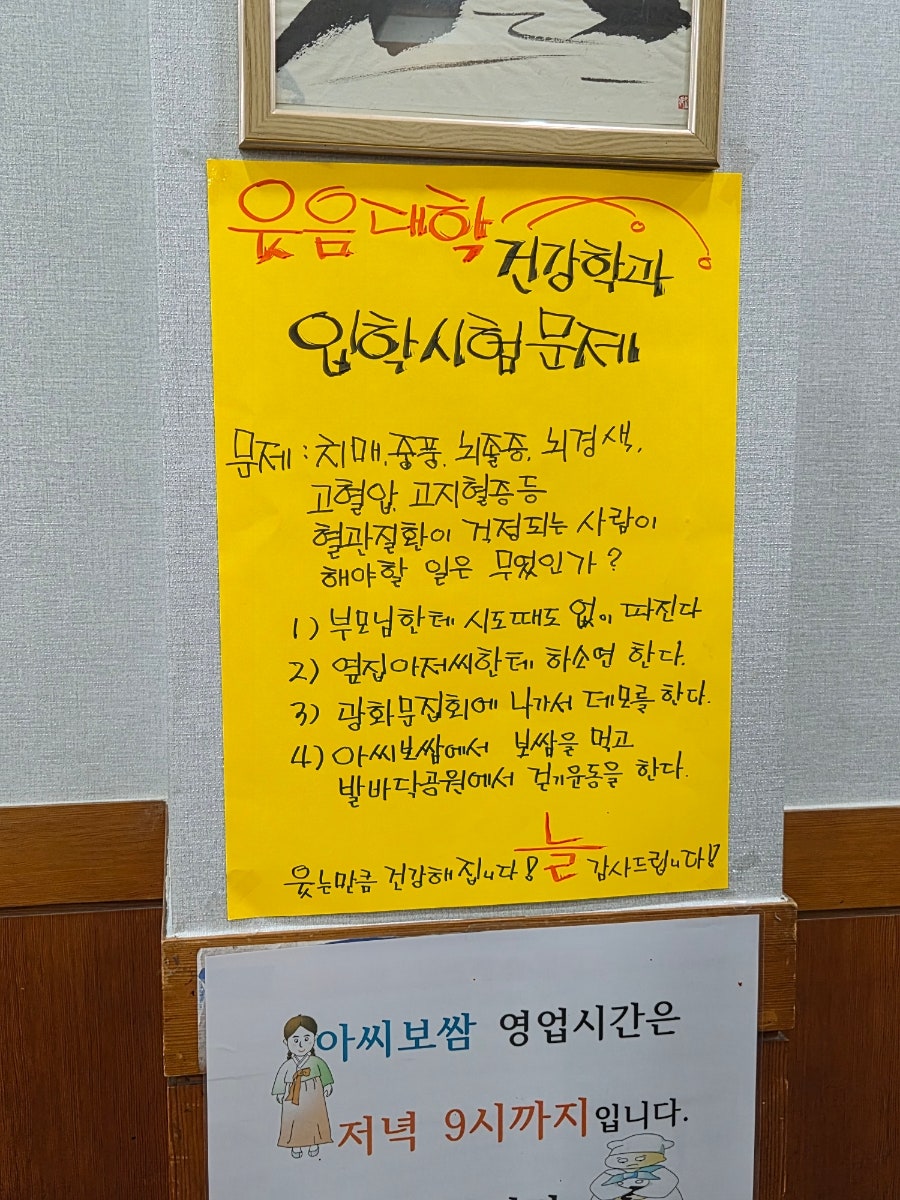 웃음대학
건강학과
입학시험문제
문제: 치매, 중풍, 뇌졸증, 뇌경색,
고혈압, 고지혈증등
혈관질환이 걱정되는 사람이
해야할 일은 무엇인가?
1) 부모님한테 시도때도 없이 따진다
2) 옆집아저씨한테 하소연 한다.
3) 광화문집회에 나가서 데모를 한다.
4) 아씨보쌈에서 보쌈을 먹고
발바닥공원에서 걷기운동을 한다.
웃는만큼 건강해집니다! 늘 감사드립니다!
아씨보쌈 영업시간은
저녁 9시까지입니다.